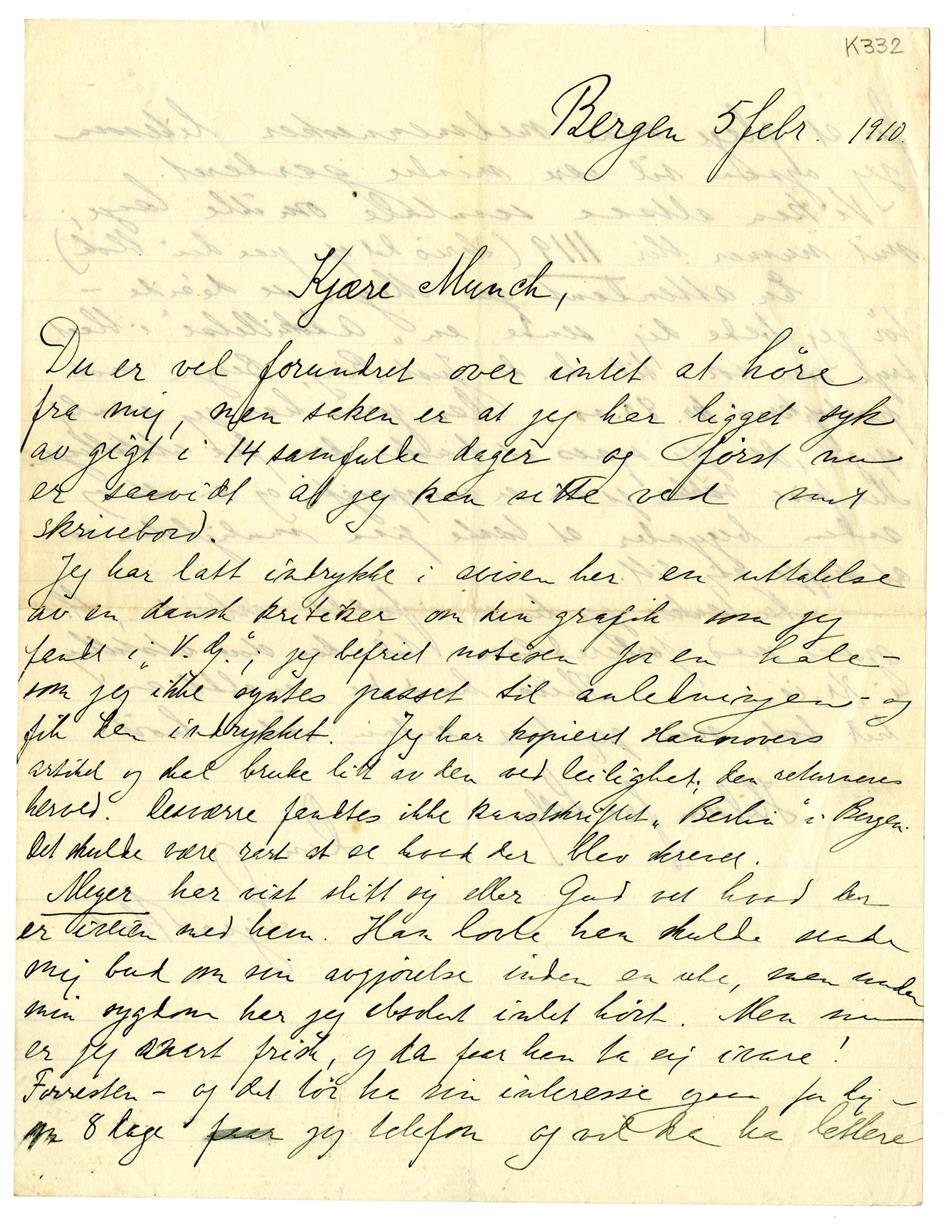 K332
Bergen 5 febr. 1910.
Kjære Munch,
Du er vel forundret over intet at höre
fra mig, men saken er at jeg har ligget syk
av gigt i 14 samfulde dager og först nu
er saavidt at jeg kan sitte ved mit
skrivebord.
Jeg har latt indrykke i avisen her en uttalelse
av en dansk kritiker om din grafik som jeg
fandt i „V. G.“; jeg befriet notisen for en hale –
som jeg ikke syntes passet til anledningen – og
fik den indrykket. Jeg har kopieret Hannovers
artikel og skal bruke litt av den ved leilighet; den returneres
herved. Desværre fandtes ikke kunstskriftet „Berlin“ i Bergen.
Det skulde være rart at se hvad der blev skrevet.
Meyer har vist slitt sig eller Gud vet hvad der
er iveien med ham. Han lovte han skulde sende
mig bud om sin avgjörelse inden en uke, men under
min sygdom har jeg absolut intet hört. Men nu
er jeg snart frisk, og da faar han ta sig ivare!
Forresten – og det tör ha sin interesse ogsaa for dig –
om 8 dage faar jeg telefon og vil da ha lettere